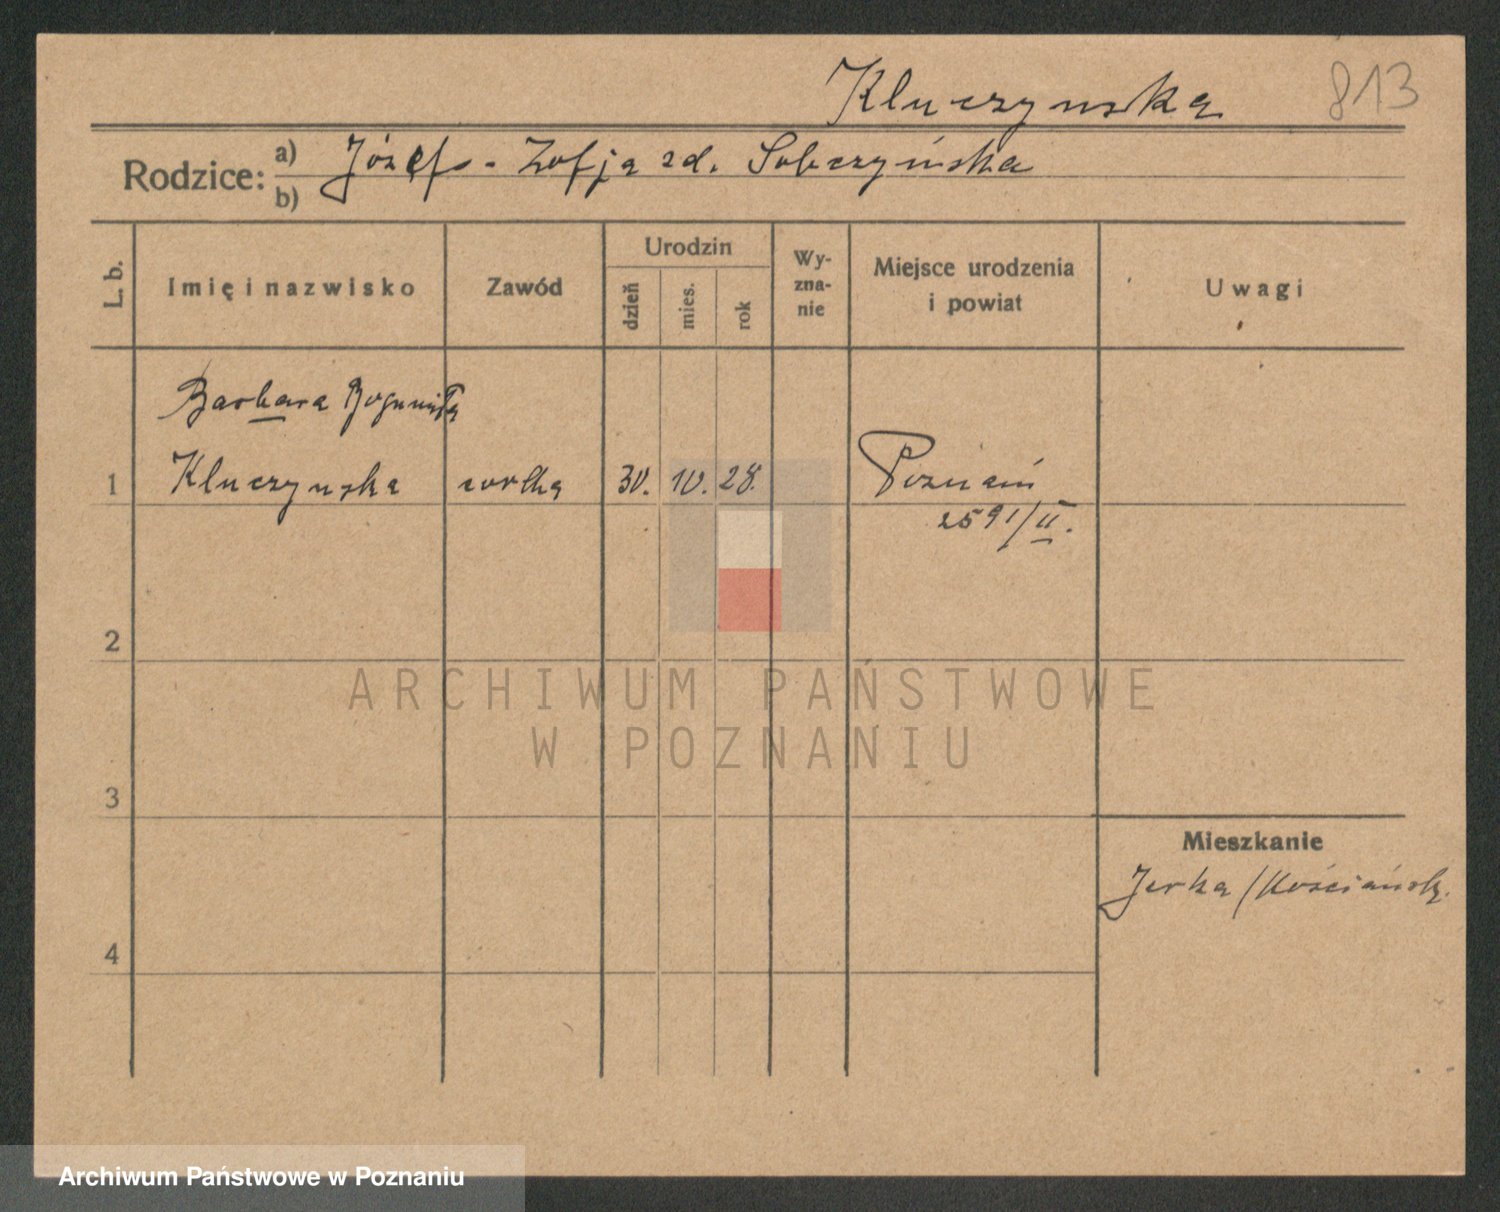 Kluczynska 813
Rodzice: a) Józef - Zofja zd. Sobczyńska
b)
L. b. Imię i nazwisko Zawód Urodzin dzień mies. rok Wy-zna-nie Miejsce urodzenia i powiat Uwagi
Barbara Bogumiła
1 Kluczynska corka 30. 10. 28. Poznań
2591/II.
2
ARCHIWUM PAŃSTWOWE
W POZNANIU
3
Mieszkanie
Jerka /Kościańsk.
4
Archiwum Państwowe w Poznaniu